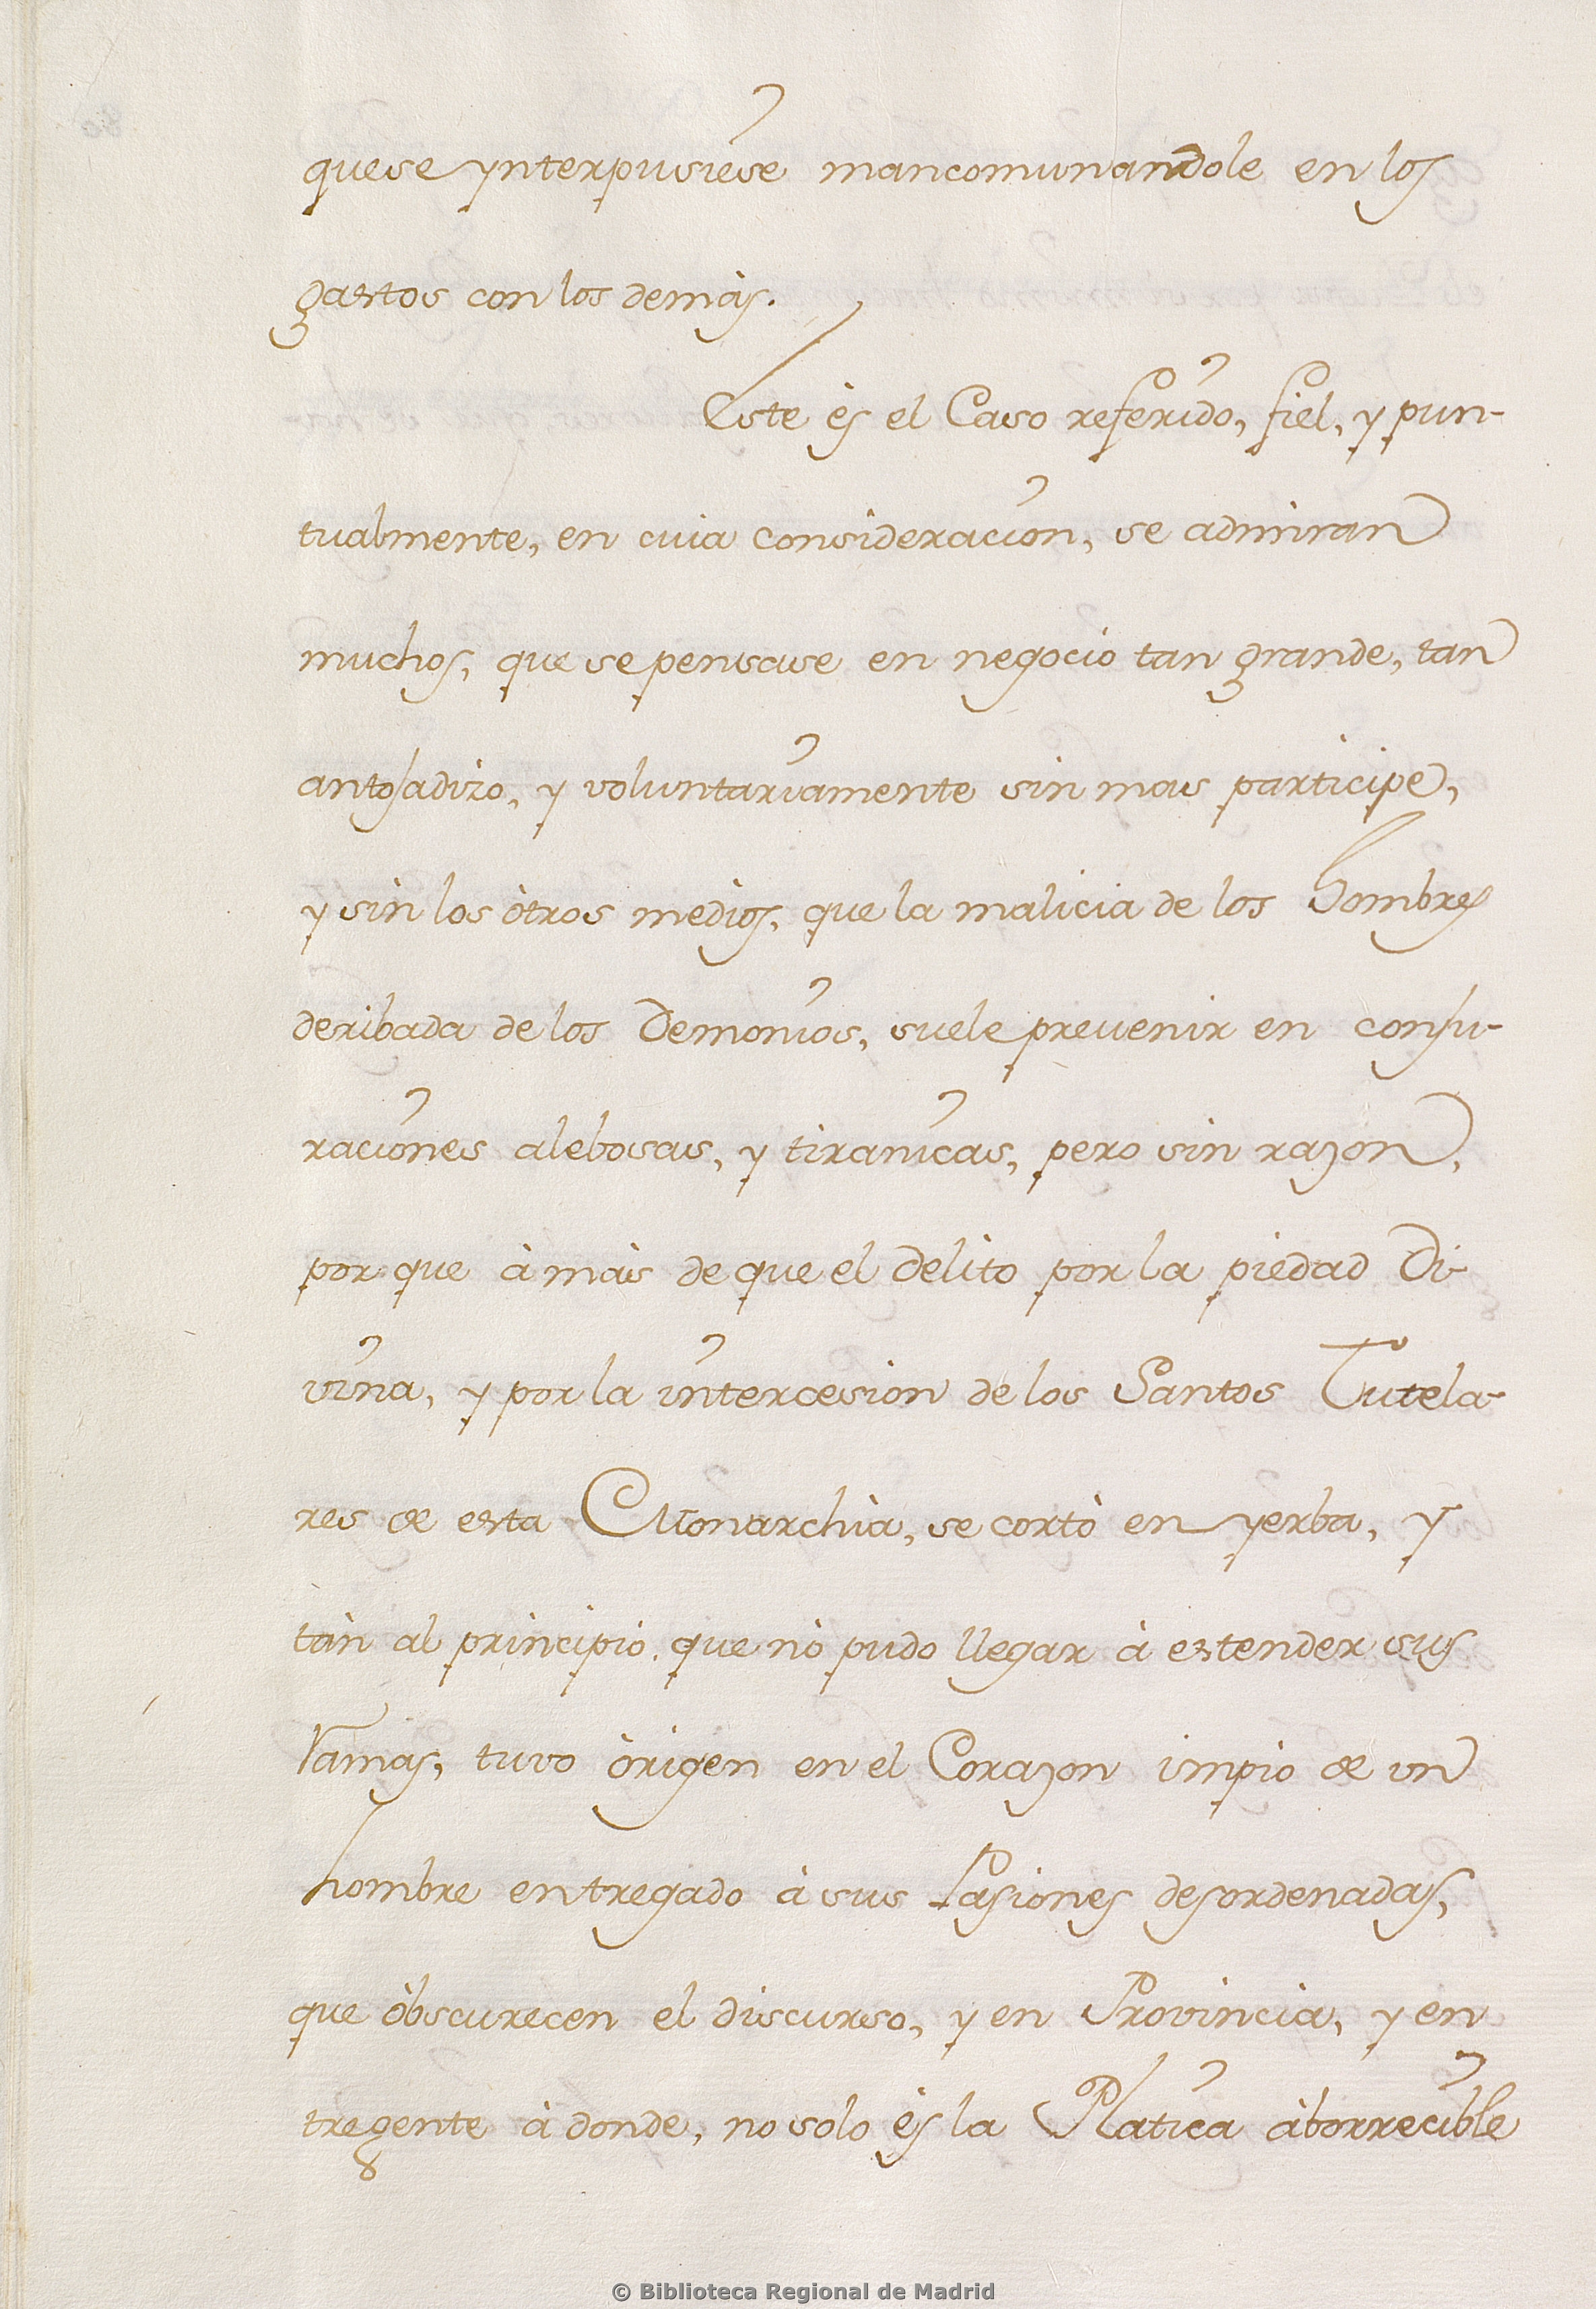 quese ynterpusiese mancomunandole en los
gastos con los demàs.
Este ès el Caso referido, fiel, y pun-
tualmente, en cuia consideracion, se admiran
muchos, que se pensase en negocio tan grande, tan
antojadizo, y voluntariamente sin mas participe,
y sin los òtros medios, que la malicia de los hombres
deribada de los Demonios, suele preuenir en conju-
raciones alebosas, y tiranicas, pero sin razon,
por que à màs de que el delito por la piedad Di-
vina, y por la intercesion de los Santos Tutela-
res de esta Monarchìa, se cortò en yerba, y
tàn al principio, que nò pudo llegar à estender sus
Ramas, tuvo òrigen en el Corazon impio de vn
hombre entregado à sus Pasiones desordenadas,
que òbscurecen el discurso, y en Provincia, y en
tregente à donde, no solo ès la Platica àborrecible
© Biblioteca Regional de Madrid